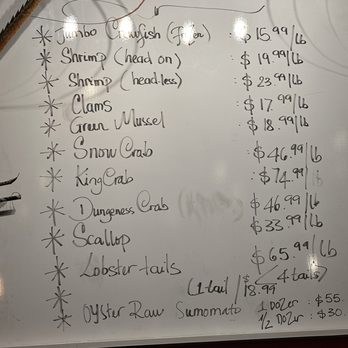 * Jumbo Crawfish (Frozen) : $15.99/lb
* Shrimp (head on) : $19.99/lb
* Shrimp (headless) : $23.99/lb
* Clams : $17.99/lb
* Green Mussel : $18.99/lb
* Snow Crab : $46.99/lb
* King Crab : $74.99/lb
* Dungeness Crab : $46.99/lb
* Scallop $33.99/lb
* Lobster tails $65.99/lb
(1 tail / $18.99 (4 tails)
* Oyster Raw Sumomato 1 Dozer : $55.
1/2 Dozer : $30.